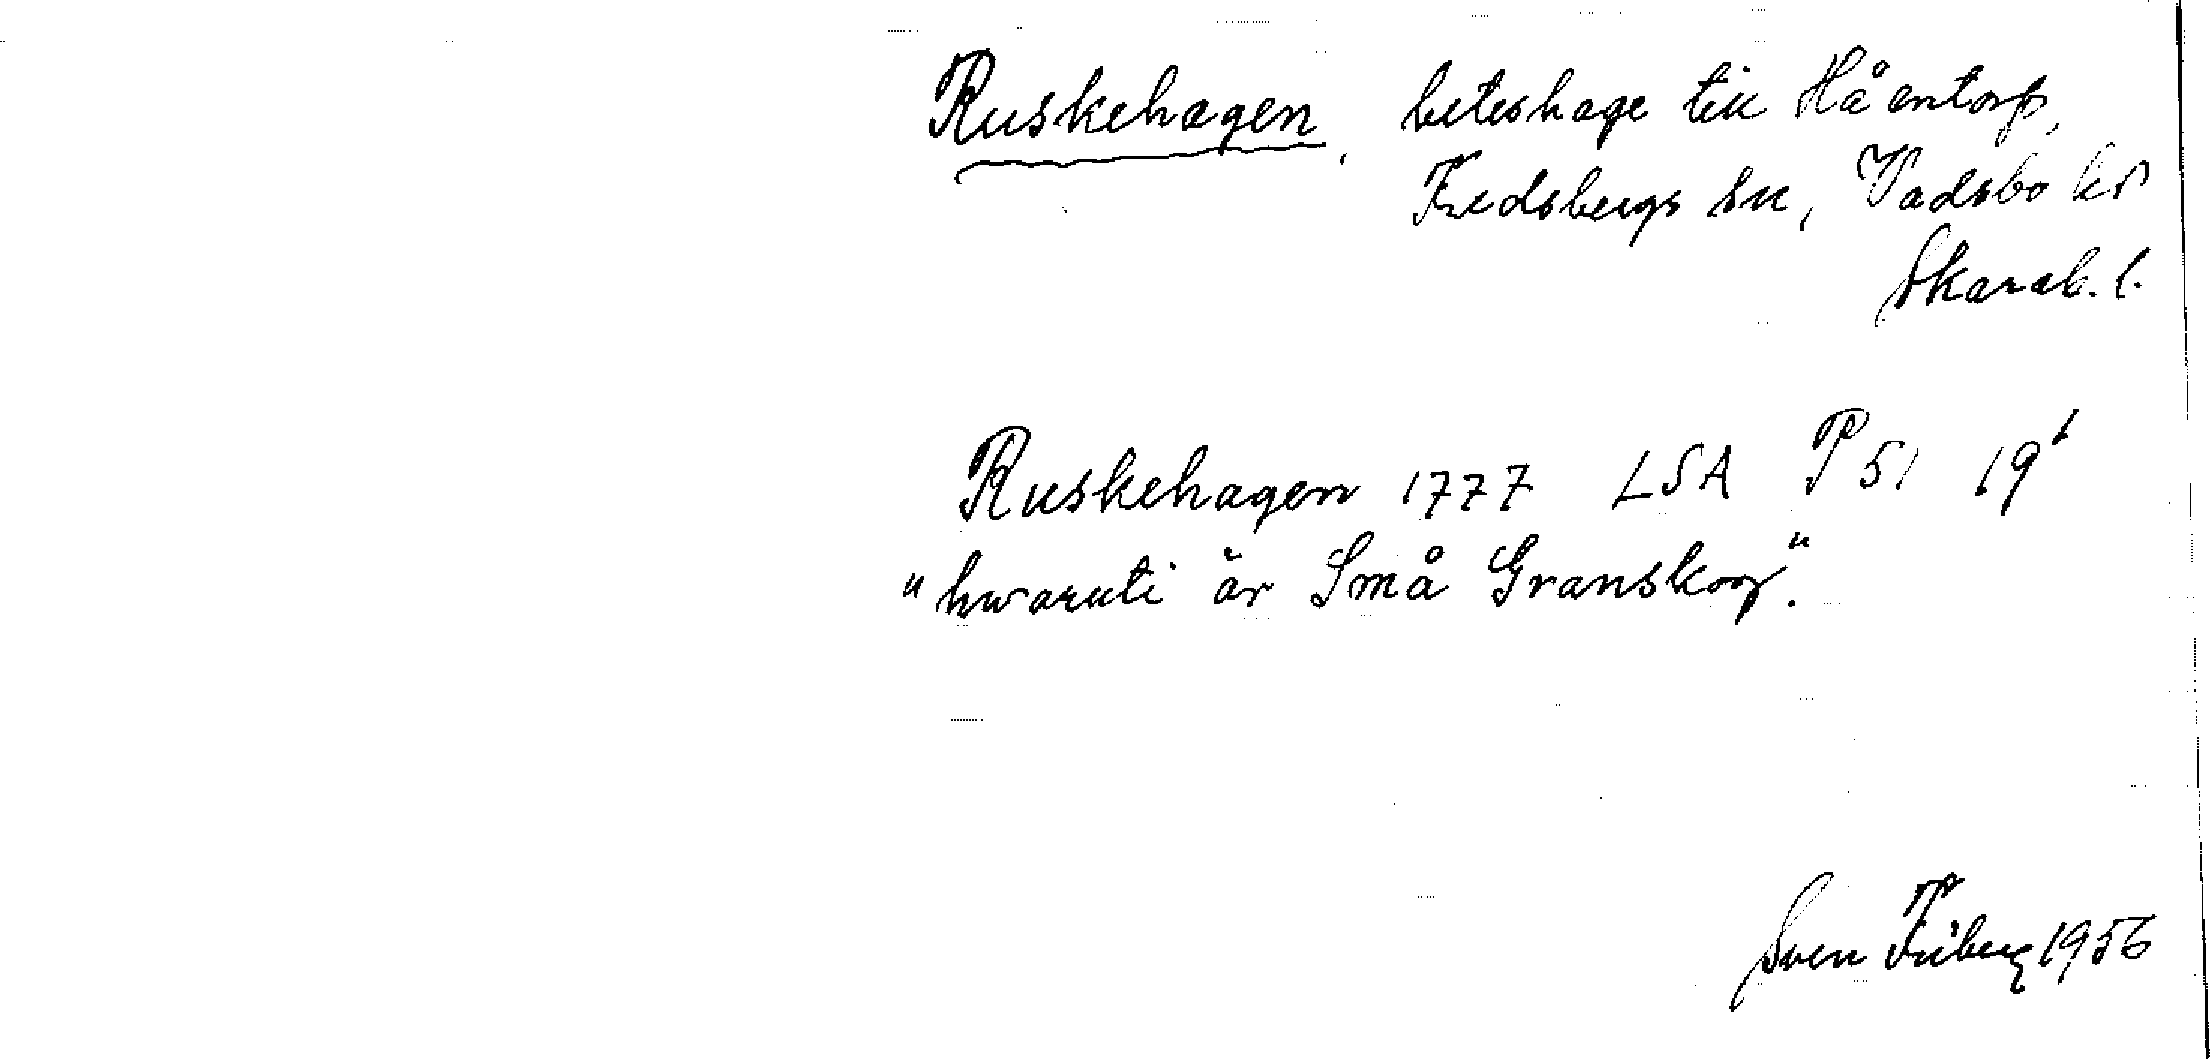 Ruskehagen, beteshage till Håentorp,
Fredsbergs sn, Vadsbo hd
Skarab. l.
Ruskehagen 1777 LSA P 51 19¹
"hwaruti är Små Granskog".
Sven Friberg 1956